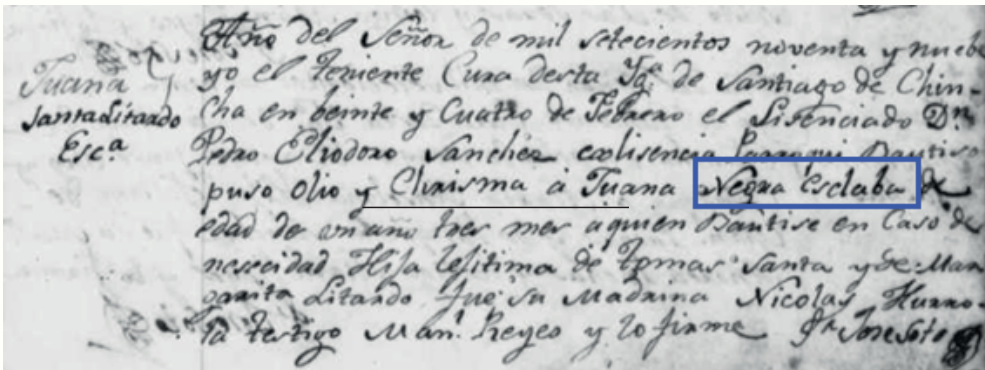 Año del Señor de mil setecientos noventa y nuebe
Juana
yo el Teniente Cura desta Yg.ª de Santiago de Chin-
Santa Litardo
cha en beinte y Cuatro de Febrero el Lisenciado D.n
Esc.ª
Pedro Eliodoro Sanchez exlisencia Parroqui Bautiso
puso olio y Chrisma á Juana Negra Esclaba de
edad de un año tres mes a quien Bautise en Caso de
nesecidad Hija lefitima de Tomas Santa y de Mar
garita Litardo fue su Madrina Nicolas
testigo Man.l Reyes y lo firme Fr Jose Soto